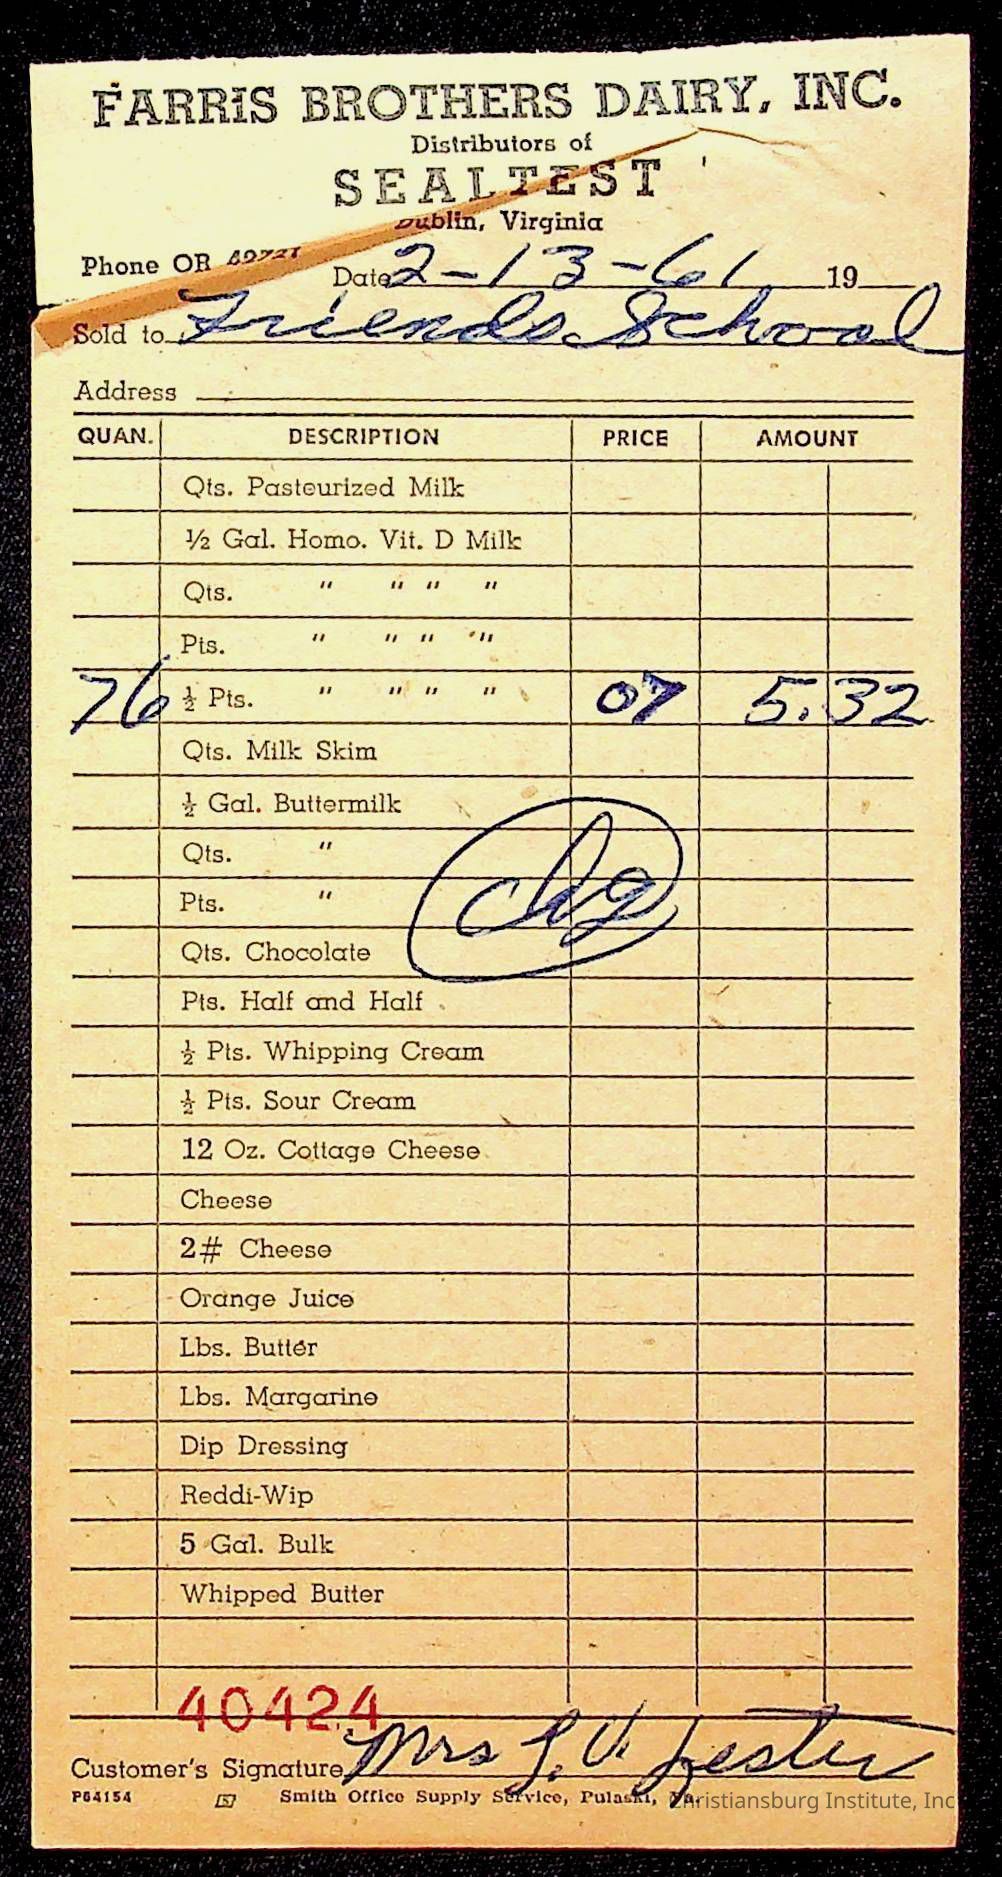 FARRIS BROTHERS DAIRY, INC.
Distributors of
SEALTEST
Dublin, Virginia
Phone OR 49721 Date 2-13-61 19
Sold to Friends School
Address
QUAN. DESCRIPTION PRICE AMOUNT
Qts. Pasteurized Milk
½ Gal. Homo. Vit. D Milk
Qts. " " " "
Pts. " " " "
76 ½ Pts. " " " " 07 5.32
Qts. Milk Skim
½ Gal. Buttermilk
Qts. "
Pts. "
Chg
Qts. Chocolate
Pts. Half and Half
½ Pts. Whipping Cream
½ Pts. Sour Cream
12 Oz. Cottage Cheese
Cheese
2# Cheese
Orange Juice
Lbs. Butter
Lbs. Margarine
Dip Dressing
Reddi-Wip
5 Gal. Bulk
Whipped Butter
40424
Customer's Signature Mrs L. V. Lester
P64154 Smith Office Supply Service, Pulaski, Va.
Christiansburg Institute, Inc